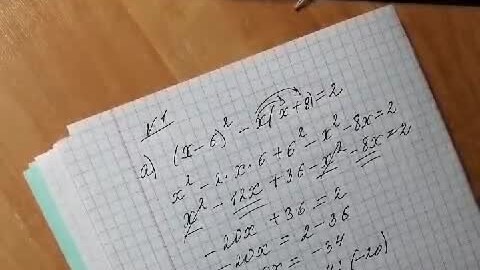 №1
а) (x-6)² - x(x+8) = 2
x² - 2·x·6 + 6² - x² - 8x = 2
x² - 12x + 36 - x² - 8x = 2
-20x + 36 = 2
-20x = 2 - 36
x = -34
(-20)